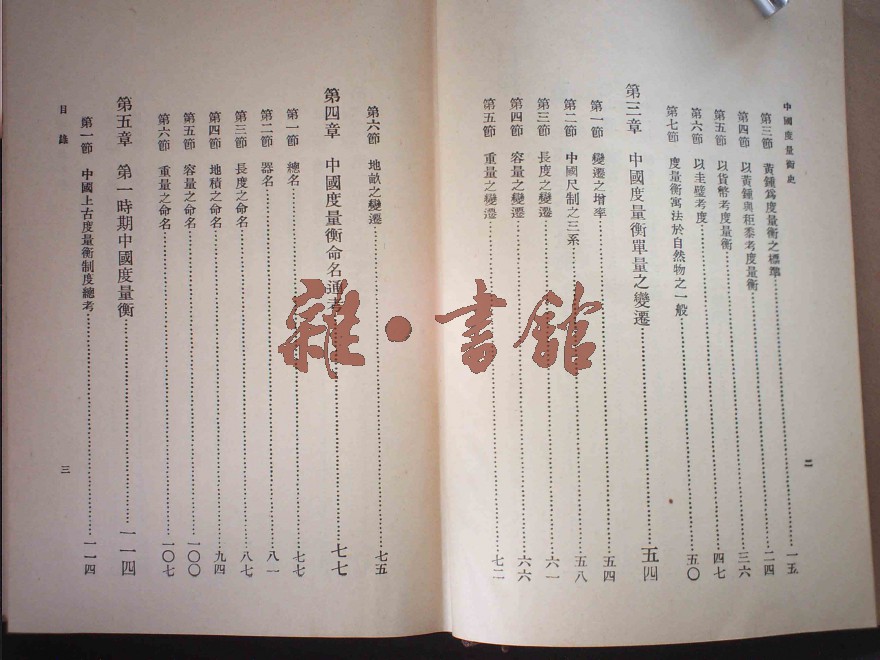 中國度量衡史
二
第三節 黃鍾爲度量衡之標準……一五
第四節 以黃鍾與秬黍考度量衡……二四
第五節 以貨幣考度量衡……三六
第六節 以圭璧考度……四七
第七節 度量衡寓法於自然物之一般……五〇
第三章 中國度量衡單量之變遷……五四
第一節 變遷之增率……五四
第二節 中國尺制之三系……五八
第三節 長度之變遷……六一
第四節 容量之變遷……六六
第五節 重量之變遷……七二
第六節 地畝之變遷……七五
第四章 中國度量衡命名通考……七七
第一節 總名……七七
第二節 器名……八一
第三節 長度之命名……八七
第四節 地積之命名……九四
第五節 容量之命名……一〇〇
第六節 重量之命名……一〇七
第五章 第一時期中國度量衡……一一四
第一節 中國上古度量衡制度總考……一一四
目錄
三
雜·書館